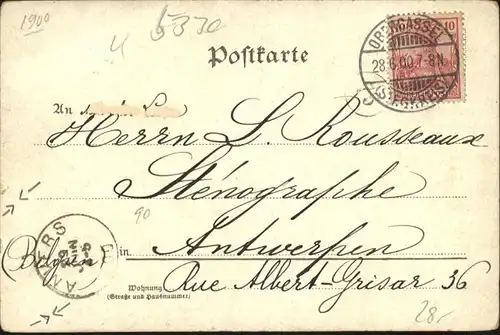 1900
5370
Postkarte
10
OBERCASSEL
28.6.00.7-8N.
An
Herrn L. Rousseaux
Sténographe
90
ANVERS
Belgien in Antwerpen
Wohnung
(Straße und Hausnummer)
Rue Albert-Grisar 36
28,-